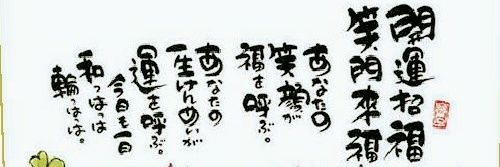 開運招福
笑門来福
あなたの
笑顔が
福を呼ぶ。
あなたの
一生けんめいが
運を呼ぶ。
今日も一日
和っはっは
輪っはっは。